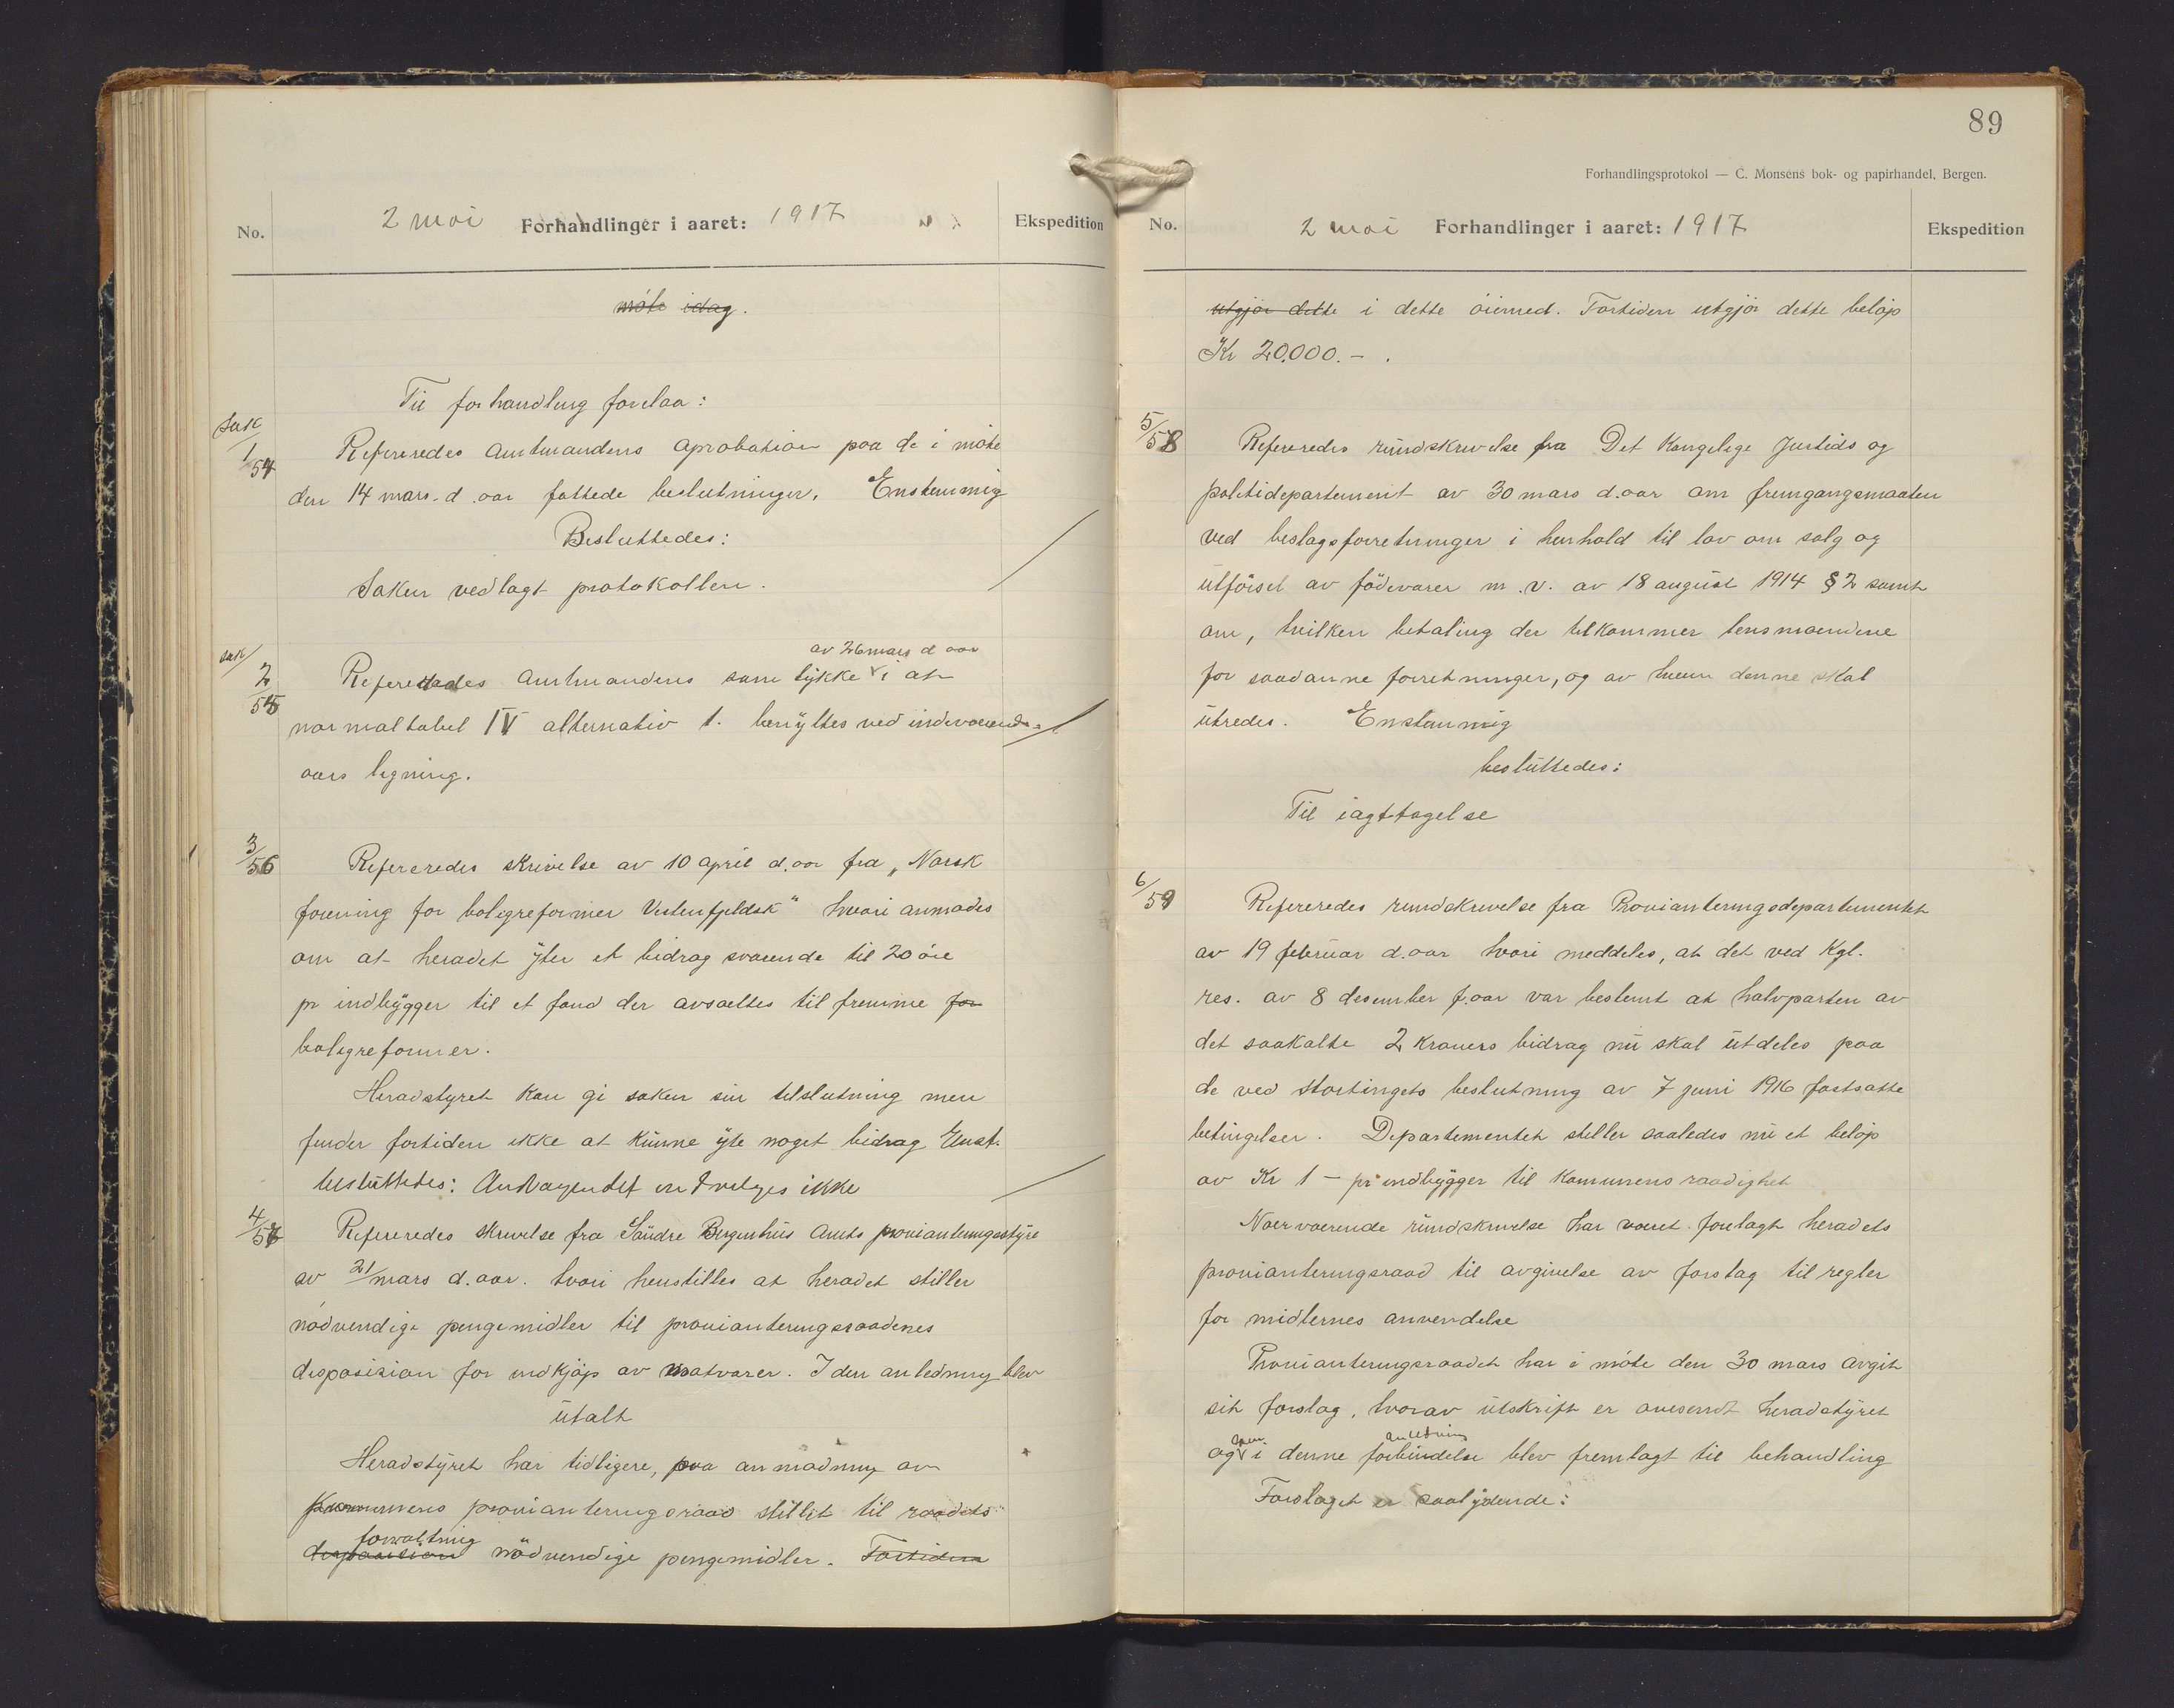 No.
2 mai Forhandlinger i aaret: 1917
Ekspedition
møte idag.
Til forhandling forelaa:
Sak
1/54
Refereredes Amtmandens aprobation paa de i møte
den 14 mars d. aar fattede beslutninger. Enstemmig
Besluttedes:
Saken vedlagt protokollen.
sak/
2/55
av 26 mars d aar
Refereredes Amtmandens samtykke i at
normaltabel IV alternativ 1. benyttes ved indeværende
aars ligning.
3/56
Refereredes skrivelse av 10 april d. aar fra „Norsk
forening for boligreformer Vestenfjeldsk" hvori anmodes
om at heradet yter et bidrag svarende til 20 øre
pr indbygger til et fond der avsættes til fremme for
boligreformer.
Heradstyret kan gi saken sin tilslutning men
finder fortiden ikke at kunne yte noget bidrag Enst.
besluttedes: Andragendet indvilges ikke
4/57
Refereredes skrivelse fra Søndre Bergenhus Amts provianteringsstyre
av 21/mars d. aar. hvori henstilles at heradet stiller
nødvendige pengemidler til provianteringsraadenes
disposision for indkjøp av matvarer. I den anledning blev
utalt
Heradstyret har tidligere, paa anmodning av
Kommunens provianteringsraad stillet til raadets
forvaltning
disposision nødvendige pengemidler. Fortiden
89
Forhandlingsprotokol — C. Monsens bok- og papirhandel, Bergen.
No.
2 mai Forhandlinger i aaret: 1917
Ekspedition
utgjør dette i dette øiemed. Fortiden utgjør dette beløp
Kr 20.000.- .
5/58
Refereredes rundskrivelse fra Det Kongelige Justids og
politidepartement av 30 mars d. aar om fremgangsmaaten
ved beslagsforretninger i henhold til lov om salg og
utførsel av fødevarer m. v. av 18 august 1914 § 2 samt
om, hvilken betaling der tilkommer lensmændene
for saadanne forretninger, og av hvem denne skal
utredes. Enstemmig
besluttedes:
Til iagttagelse
6/59
Refereredes rundskrivelse fra Provianteringsdepartementet
av 19 februar d. aar hvori meddeles, at det ved Kgl.
res. av 8 desember f. aar var bestemt at halvparten av
det saakalte 2 Kroners bidrag nu skal utdeles paa
de ved stortingets beslutning av 7 juni 1916 fastsatte
betingelser. Departementet stiller saaledes nu et beløp
av Kr 1 - pr indbygger til Kommunens raadighet
Nærværende rundskrivelse har været forelagt heradets
provianteringsraad til avgivelse av forslag til regler
for midlernes anvendelse
Provianteringsraadet har i møte den 30 mars avgit
sit forslag, hvorav utskrift er oversendt heradstyret
som anledning
og i denne forbindelse blev fremlagt til behandling
Forslaget er saalydende: